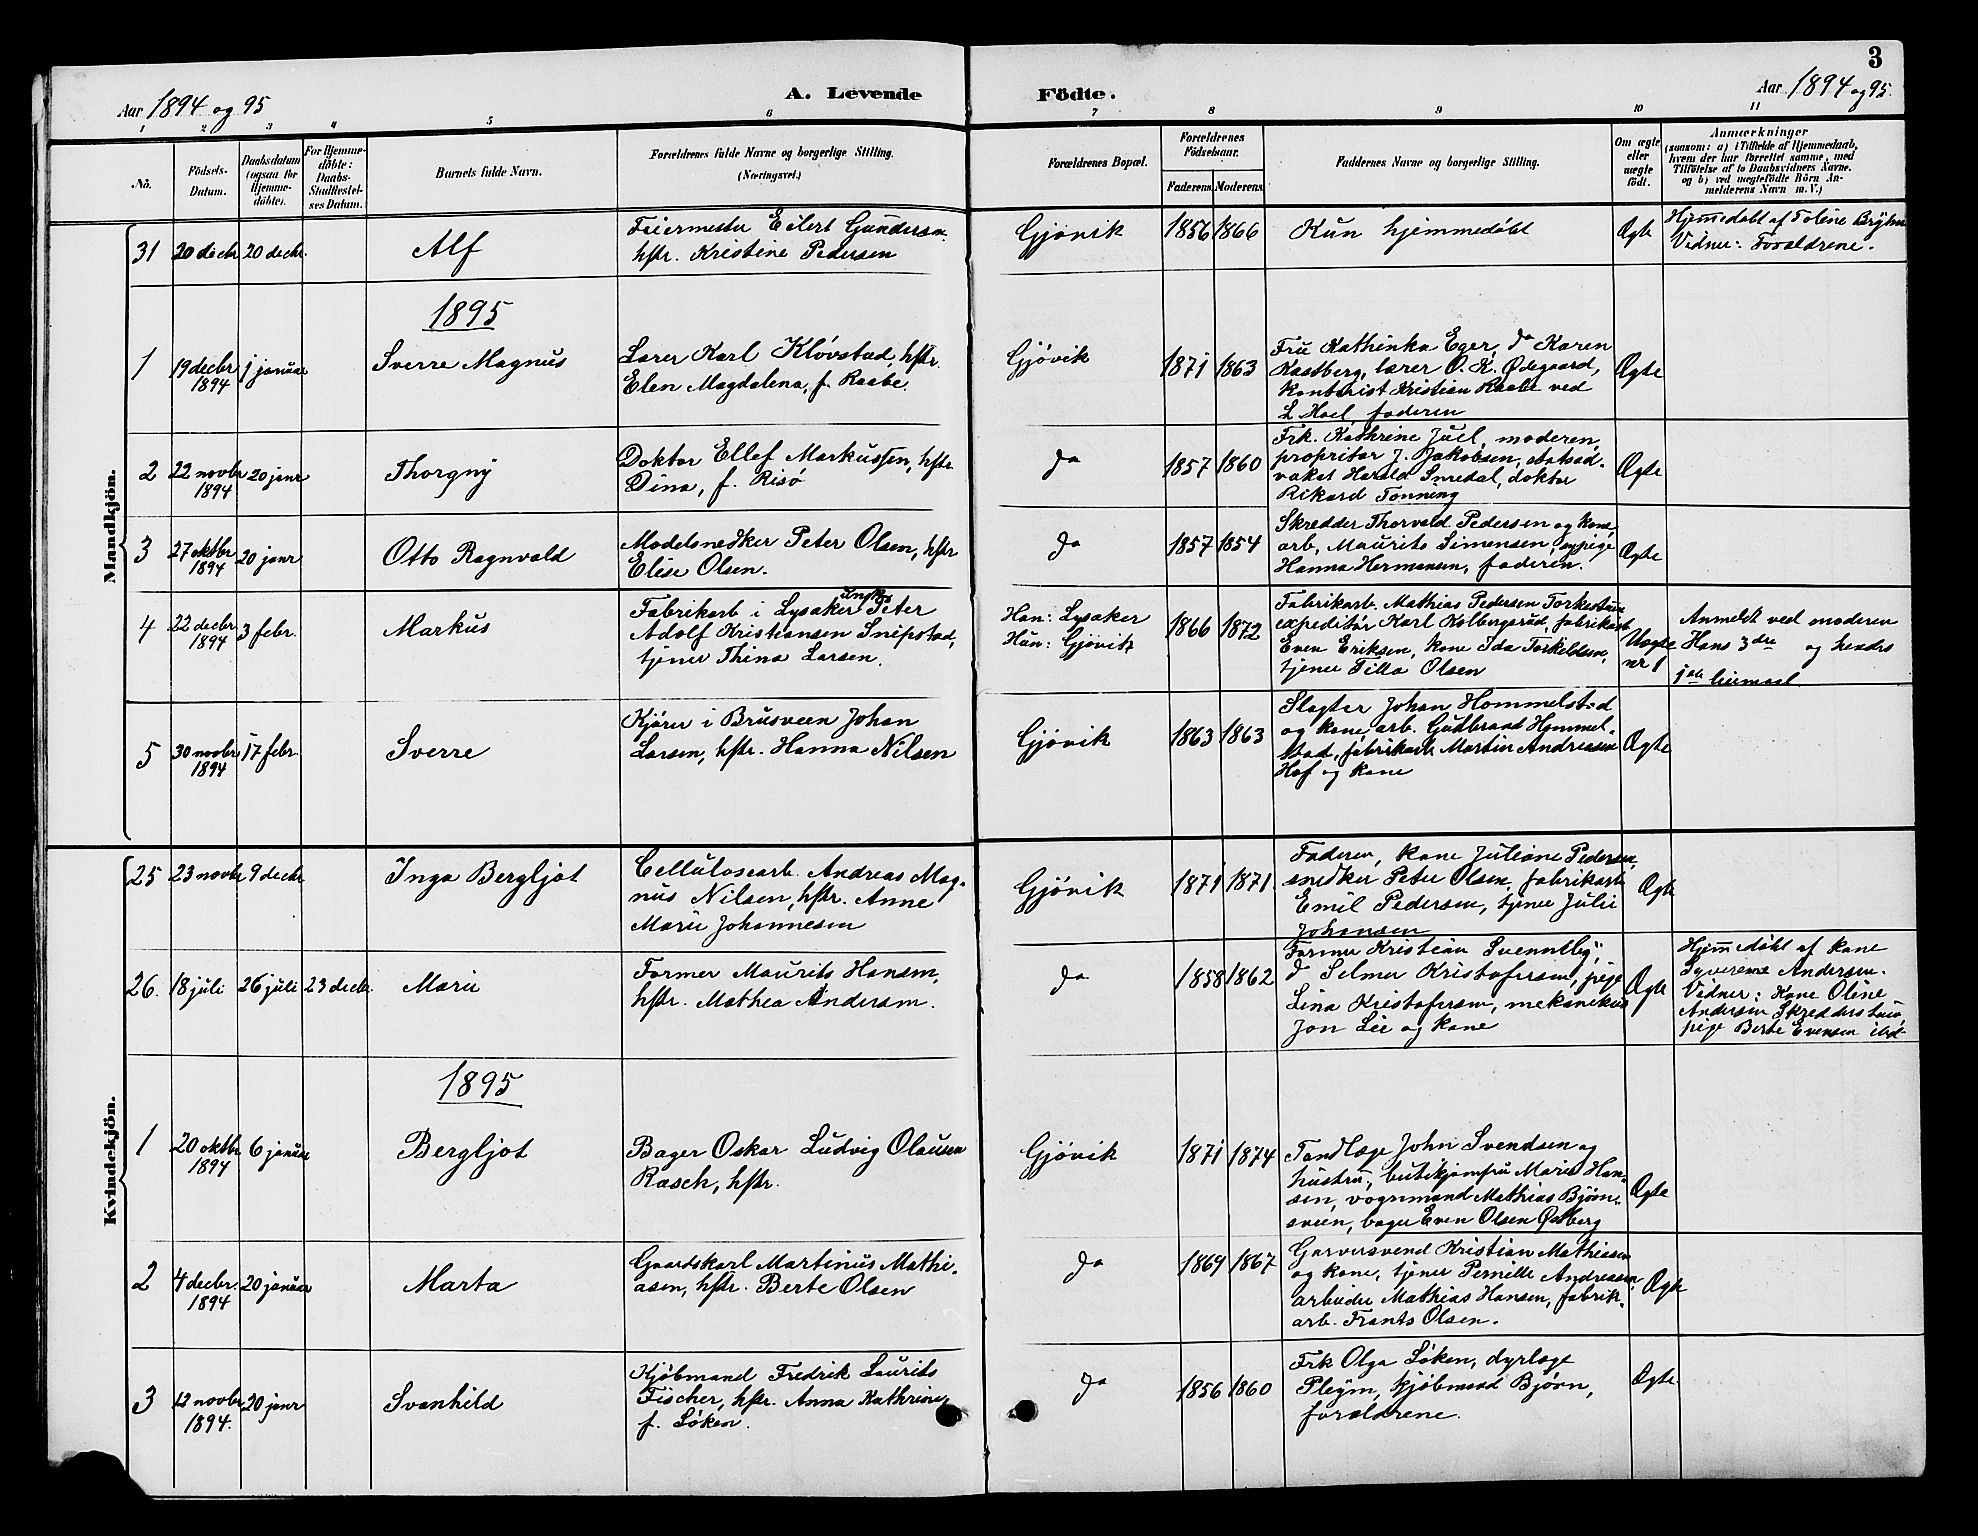 3
Aar 1894 og 95
A. Levende Födte.
Aar 1894 og 95.
1 2 3 4 5 6 7 8 9 10 11
No.
Födsels-
Datum.
Daabsdatum
(ogsaa for
Hjemme-
döbte).
For Hjemme-
döbte:
Daabs-
Stadfæstel-
ses Datum.
Barnets fulde Navn.
Forældrenes fulde Navne og borgerlige Stilling.
(Næringsvei.)
Forældrenes Bopæl.
Forældrenes
Födselsaar.
Faderens Moderens
Faddernes Navne og borgerlige Stilling.
Om ægte
eller
uægte
födt.
Anmærkninger
(saasom: a) i Tilfælde af Hjemmedaab,
hvem der har forrettet samme, med
Tilföielse af to Daabsvidners Navne,
og b) ved uægtefödte Börn An-
melderens Navn m. V.)
Mandkjön.
31
20 decbr
20 decbr.
Alf
Feiermester Eilert Gundersen,
hstr. Kristine Pedersen
Gjøvik
1856
1866
Kun hjemmedøbt
Ægte
Hjemmedøbt af Toline
Vidner: Forældrene.
1895
1
19 decbr
1894
1 januar
Sverre Magnus
Lærer Karl Kløvstad, hstr.
Elen Magdalena, f. Raabe.
Gjøvik
1871
1863
Fru Kathinka Eger, do Karen
Kastberg, lærer O. K. Ødegaard,
kontorist Kristian Raabe ved
L Hoel, faderen
Ægte
2
22 novbr
1894
20 janr
Thorgny
Doktor Ellef Markussen, hstr
Dina, f. Risø
Do
1857
1860
Frk. Kathrine Juel, moderen,
propritær J. Jakobsen,
Harald Smedal, doktor
Rikard Tønning
Ægte
3
27 oktbr
1894
20 janr
Otto Ragnvald
Modelsnedker Peter Olsen, hstr
Elise Olsen.
Do
1857
1854
Skredder Thorvald Pedersen og kone,
arb. Maurits Simensen,
Hanna Hermansen, faderen.
Ægte
4
22 decbr.
1894
3 febr.
Markus
Fabrikarb i Lysaker Peter
Adolf Kristiansen Snipstad,
tjener Thina Larsen.
Han: Lysaker
Hun: Gjøvik
1866
1872
Fabrikarb. Mathias Pedersen
expeditør Karl Kolbergsrud, fabrikarb
Even Eriksen, kone Ida Torkildsen,
tjener Tilla Olsen
Uægte
nr 1
Anmeldt ved moderen
Hans 3die og hendes
1ste leiermaal
5
30 novbr
1894
17 febr.
Sverre
Kjører i Brusveen Johan
Larsen, hstr. Hanna Nilsen
Gjøvik
1863
1863
Slagter Johan Hommelstad
og kone, arb. Gudbrand Hommel-
stad, fabrikarb. Martin Andreasen
Hof og kone
Ægte
Kvindekjön.
25
23 novbr
9 decbr
Inga Bergljot
Cellulosearb. Andreas Mag-
nus Nilsen, hstr. Anne
Marie Johannesen
Gjøvik
1871
1871
Faderen, kone Juliane Pedersen,
snedker Peter Olsen, fabrikarb
Emil Pedersen, tjener Julie
Johansen
Ægte
26.
18 juli
26 juli
23 decbr.
Marie
Former Maurits Hansen,
hstr. Mathea Andersen.
Do
1858
1862
Former Kristian
do Selmer Kristofersen, pige
Lina Kristofersen, mekanikus
Jon Lie og kone
Ægte
Hjemmedøbt af kone
Syverine Andersen.
Vidner: Kone Oline
Andersen
pige Berte Evensen ibd.
1895
1
20 oktbr
1894
6 januar
Bergljot
Bager Oskar Ludvig Olausen
Rasch, hstr.
Gjøvik
1871
1874
Tandlæge John Svendsen og
hustru, butikjomfru Marie Han-
sen, vognmand Mathias Bjørn-
sveen, bager Even Olsen Østberg
Ægte
2
4 decbr.
1894
20 januar
Marta
Gaardskarl Martinus Mathi-
asen, hstr. Berte Olsen
Do
1869
1867
Garversvend Kristian Mathiasen
og kone, tjener Pernille Andreasen,
arbeider Mathias Hansen, fabrik-
arb. Frants Olsen.
Ægte
3
12 novbr
1894.
20 janr
Svanhild
Kjøbmand Fredrik Laurits
Fischer, hstr. Anna Kathrine,
f. Løken.
Do
1856
1860
Frk Olga Løken, dyrlæge
Pleym, kjøbmand Bjørn,
forældrene.
Ægte